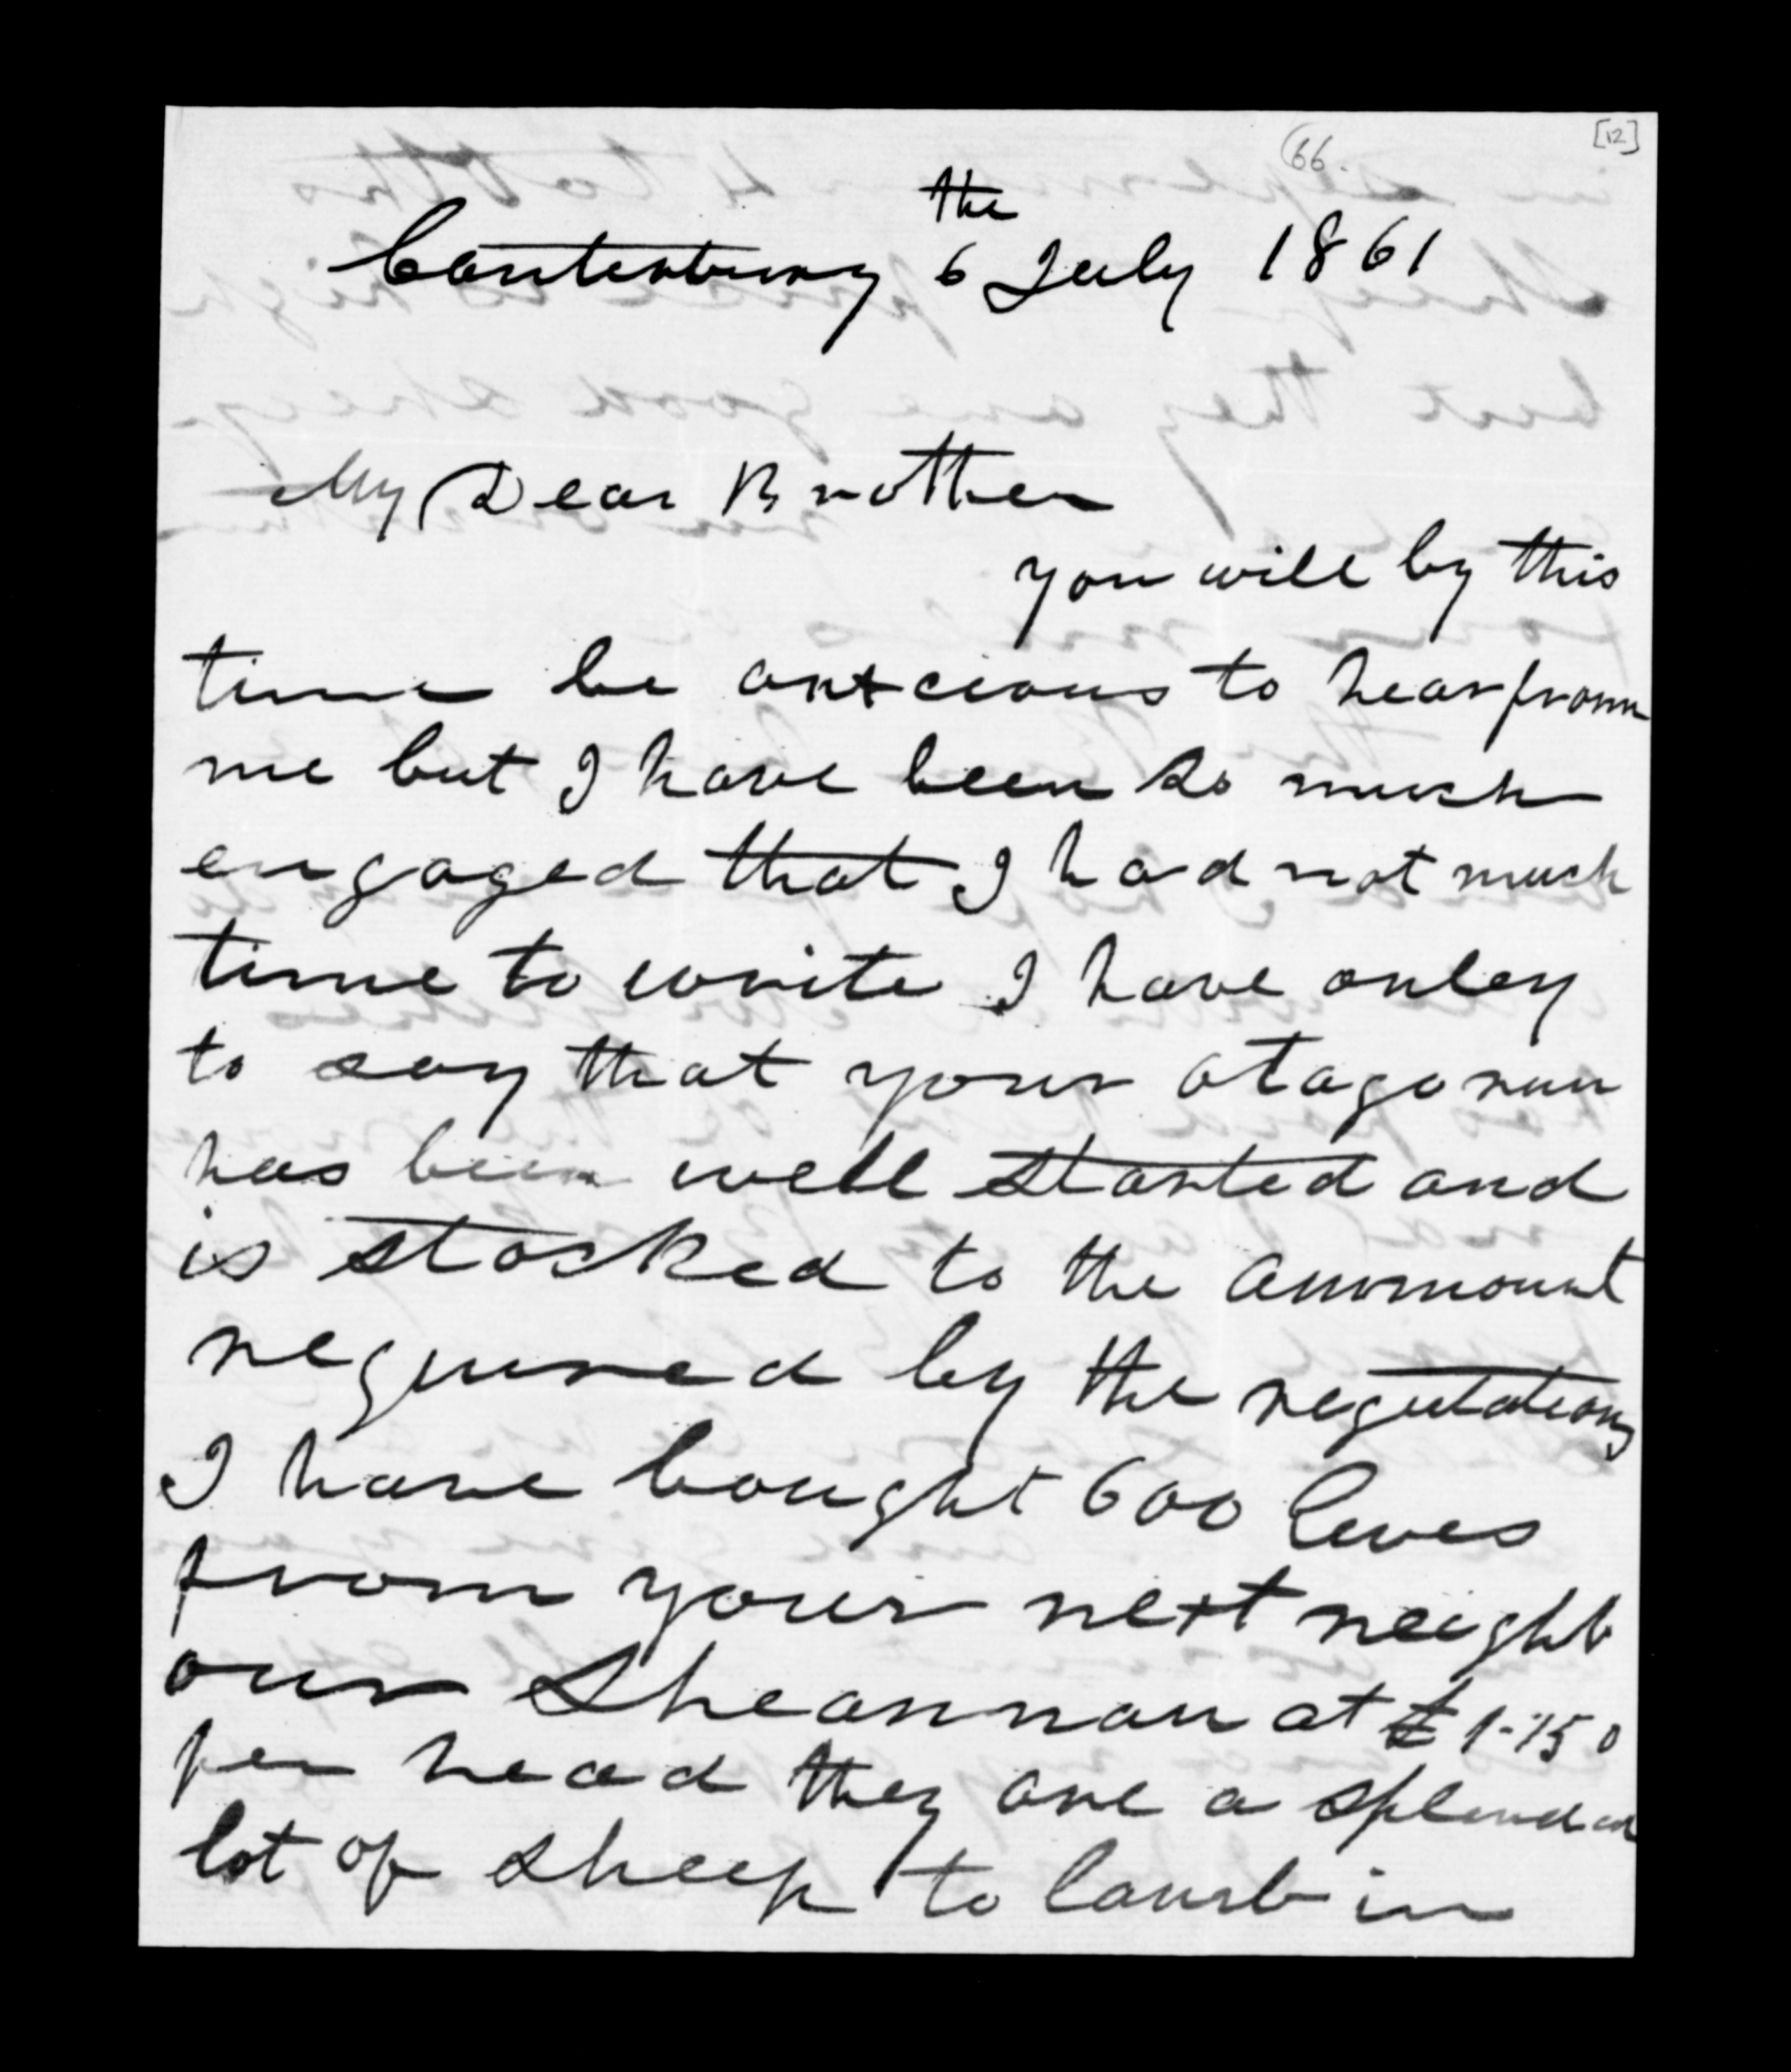 [12]
66.
the
Canterbury 6 July 1861
My Dear Brother
you will by this
time be antxcious to hear from
me but I have been so much
engaged that I had not much
time to write I have onley
to say that your otago run
has been well started and
is stocked to the ammount
required by the regulations
I have bought 600 Ewes
from your next neighb
our Shennan at £1-15 0
per head they are a splended
lot of sheep to lamb in